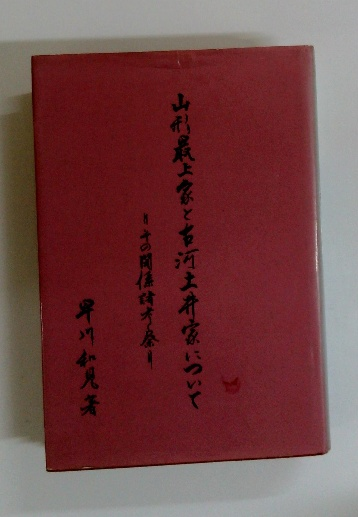 山形最上家と古河土井家について
＝その関係諸考察＝
早川和見著